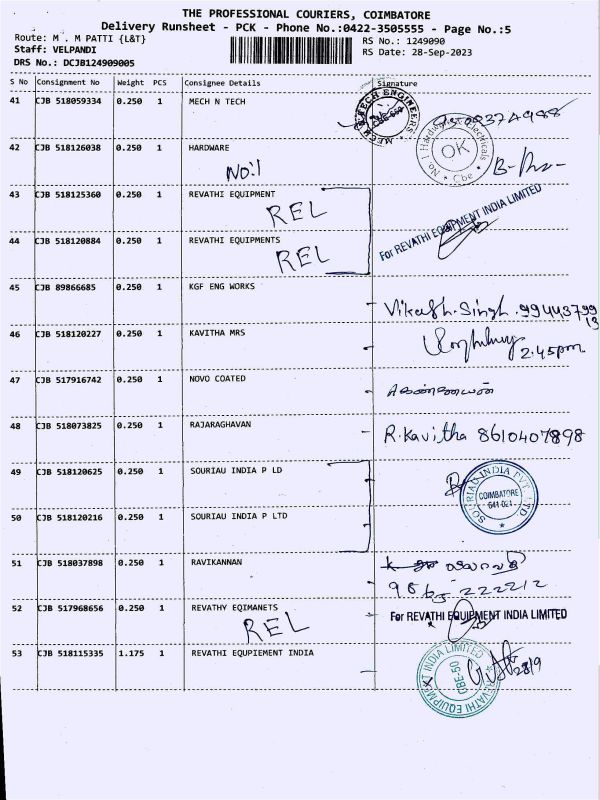 THE PROFESSIONAL COURIERS, COIMBATORE
Delivery Runsheet - PCK - Phone No.:0422-3505555 - Page No.:5
Route: M . M PATTI {L&T}
RS No.: 1249090
Staff: VELPANDI
RS Date: 28-Sep-2023
DRS No.: DCJB124909005
S No Consignment No Weight PCS Consignee Details Signature
41 CJB 518059334 0.250 1 MECH N TECH
MECH N TECH ENGINEERS
42 CJB 518126038 0.250 1 HARDWARE
NO:1
No. 1 Hardware Electricals
OK
Cbe
43 CJB 518125360 0.250 1 REVATHI EQUIPMENT
REL
For REVATHI EQUIPMENT INDIA LIMITED
44 CJB 518120884 0.250 1 REVATHI EQUIPMENTS
REL
45 CJB 89866685 0.250 1 KGF ENG WORKS
Vikash.Singh. 9944379913
46 CJB 518120227 0.250 1 KAVITHA MRS
2.45pm
47 CJB 517916742 0.250 1 NOVO COATED
48 CJB 518073825 0.250 1 RAJARAGHAVAN
R.Kavitha 8610407898
49 CJB 518120625 0.250 1 SOURIAU INDIA P LD
SOURIAU INDIA PVT. LTD
COIMBATORE
641 021
50 CJB 518120216 0.250 1 SOURIAU INDIA P LTD
51 CJB 518037898 0.250 1 RAVIKANNAN
9865 222212
52 CJB 517968656 0.250 1 REVATHY EQIMANETS
REL
For REVATHI EQUIPMENT INDIA LIMITED
53 CJB 518115335 1.175 1 REVATHI EQUPIEMENT INDIA
REVATHI EQUIPMENT INDIA LIMITED
CBE-50
28/9